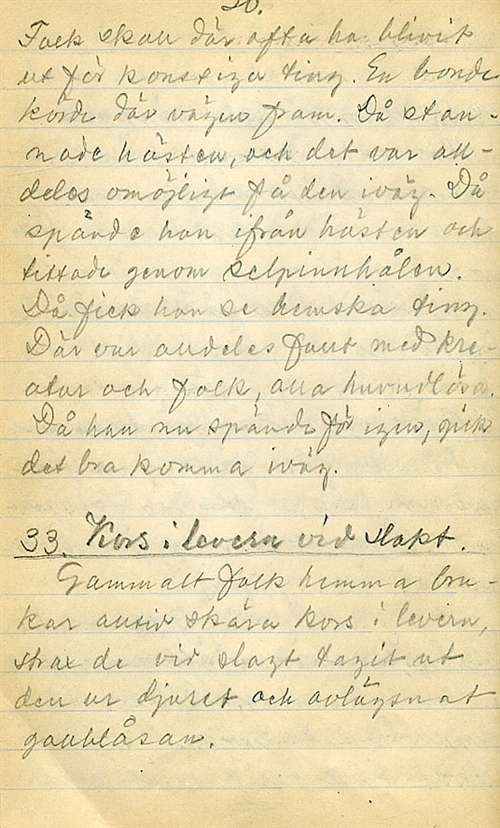 20.
Folk skall där ofta ha blivit
ut för konstiga ting. En bonde
körde där vägen fram. Då stan-
nade hästen, och det var all-
deles omöjligt få den iväg. Då
spände han ifrån hästen och
tittade genom selpinnhålen.
Då fick han se hemska ting.
Där var alldeles fullt med kre-
atur och folk, alla huvudlösa.
Då han nu spände för igen, gick
det bra komma iväg.
33. Kors i levern vid slakt.
Gammalt folk hemma bru-
kar alltid skära kors i levern,
strax de vid slagt tagit ut
den ur djuret och avlägsnat
gallblåsan.